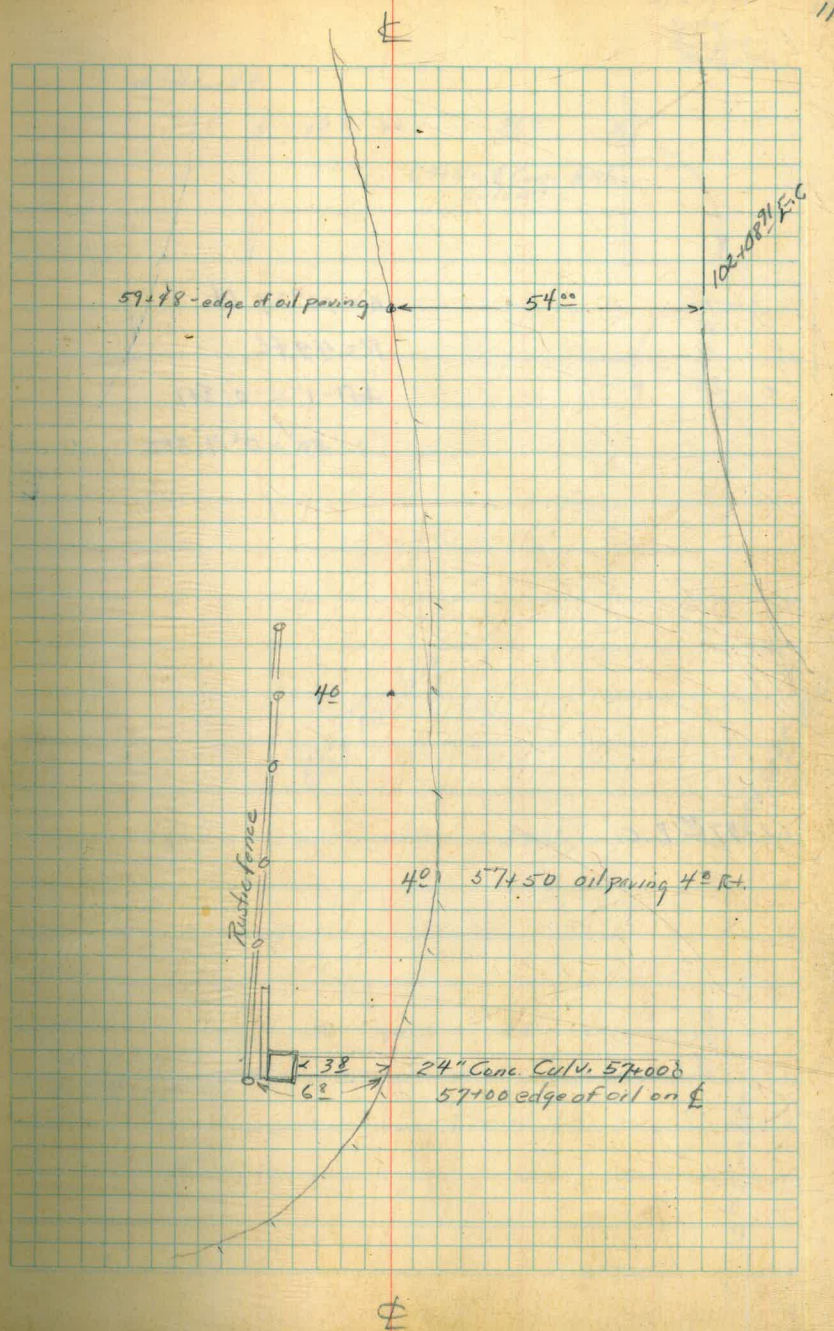 11
℄
102+08 91 E.C
59+48 - edge of oil paving
54 00
4 0
Rustic fence
4 0 57+50 oil paving 4 0 Rt.
3 8 24" Conc. Culv. 57+00
6 8 57+00 edge of oil on ℄
℄